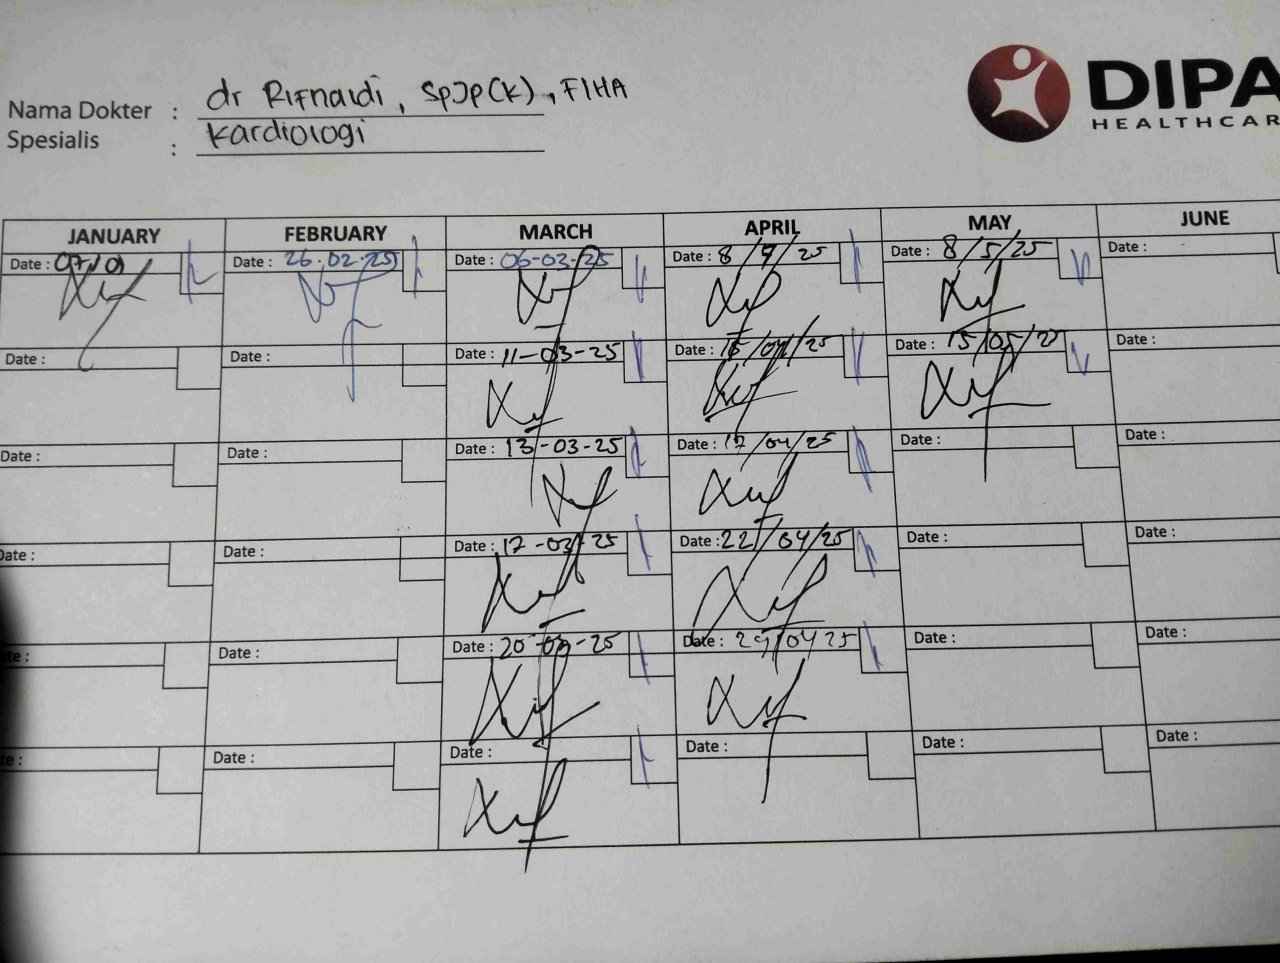 Nama Dokter : dr Rifnaldi, SpJP(K), FIHA
Spesialis : Kardiologi
DIPA
HEALTHCAR
JANUARY FEBRUARY MARCH APRIL MAY JUNE
Date : 07/01 Date : 26.02.25 Date : 06-03-25 Date : 8/4/25 Date : 8/5/25 Date :
Date : Date : Date : 11-03-25 Date : 15/04/25 Date : 15/05/25 Date :
Date : Date : Date : 13-03-25 Date : 17/04/25 Date : Date :
Date : Date : Date : 17-03-25 Date : 22/04/25 Date : Date :
Date : Date : 20-03-25 Date : 29/04 25 Date : Date :
Date : Date : Date : Date : Date :